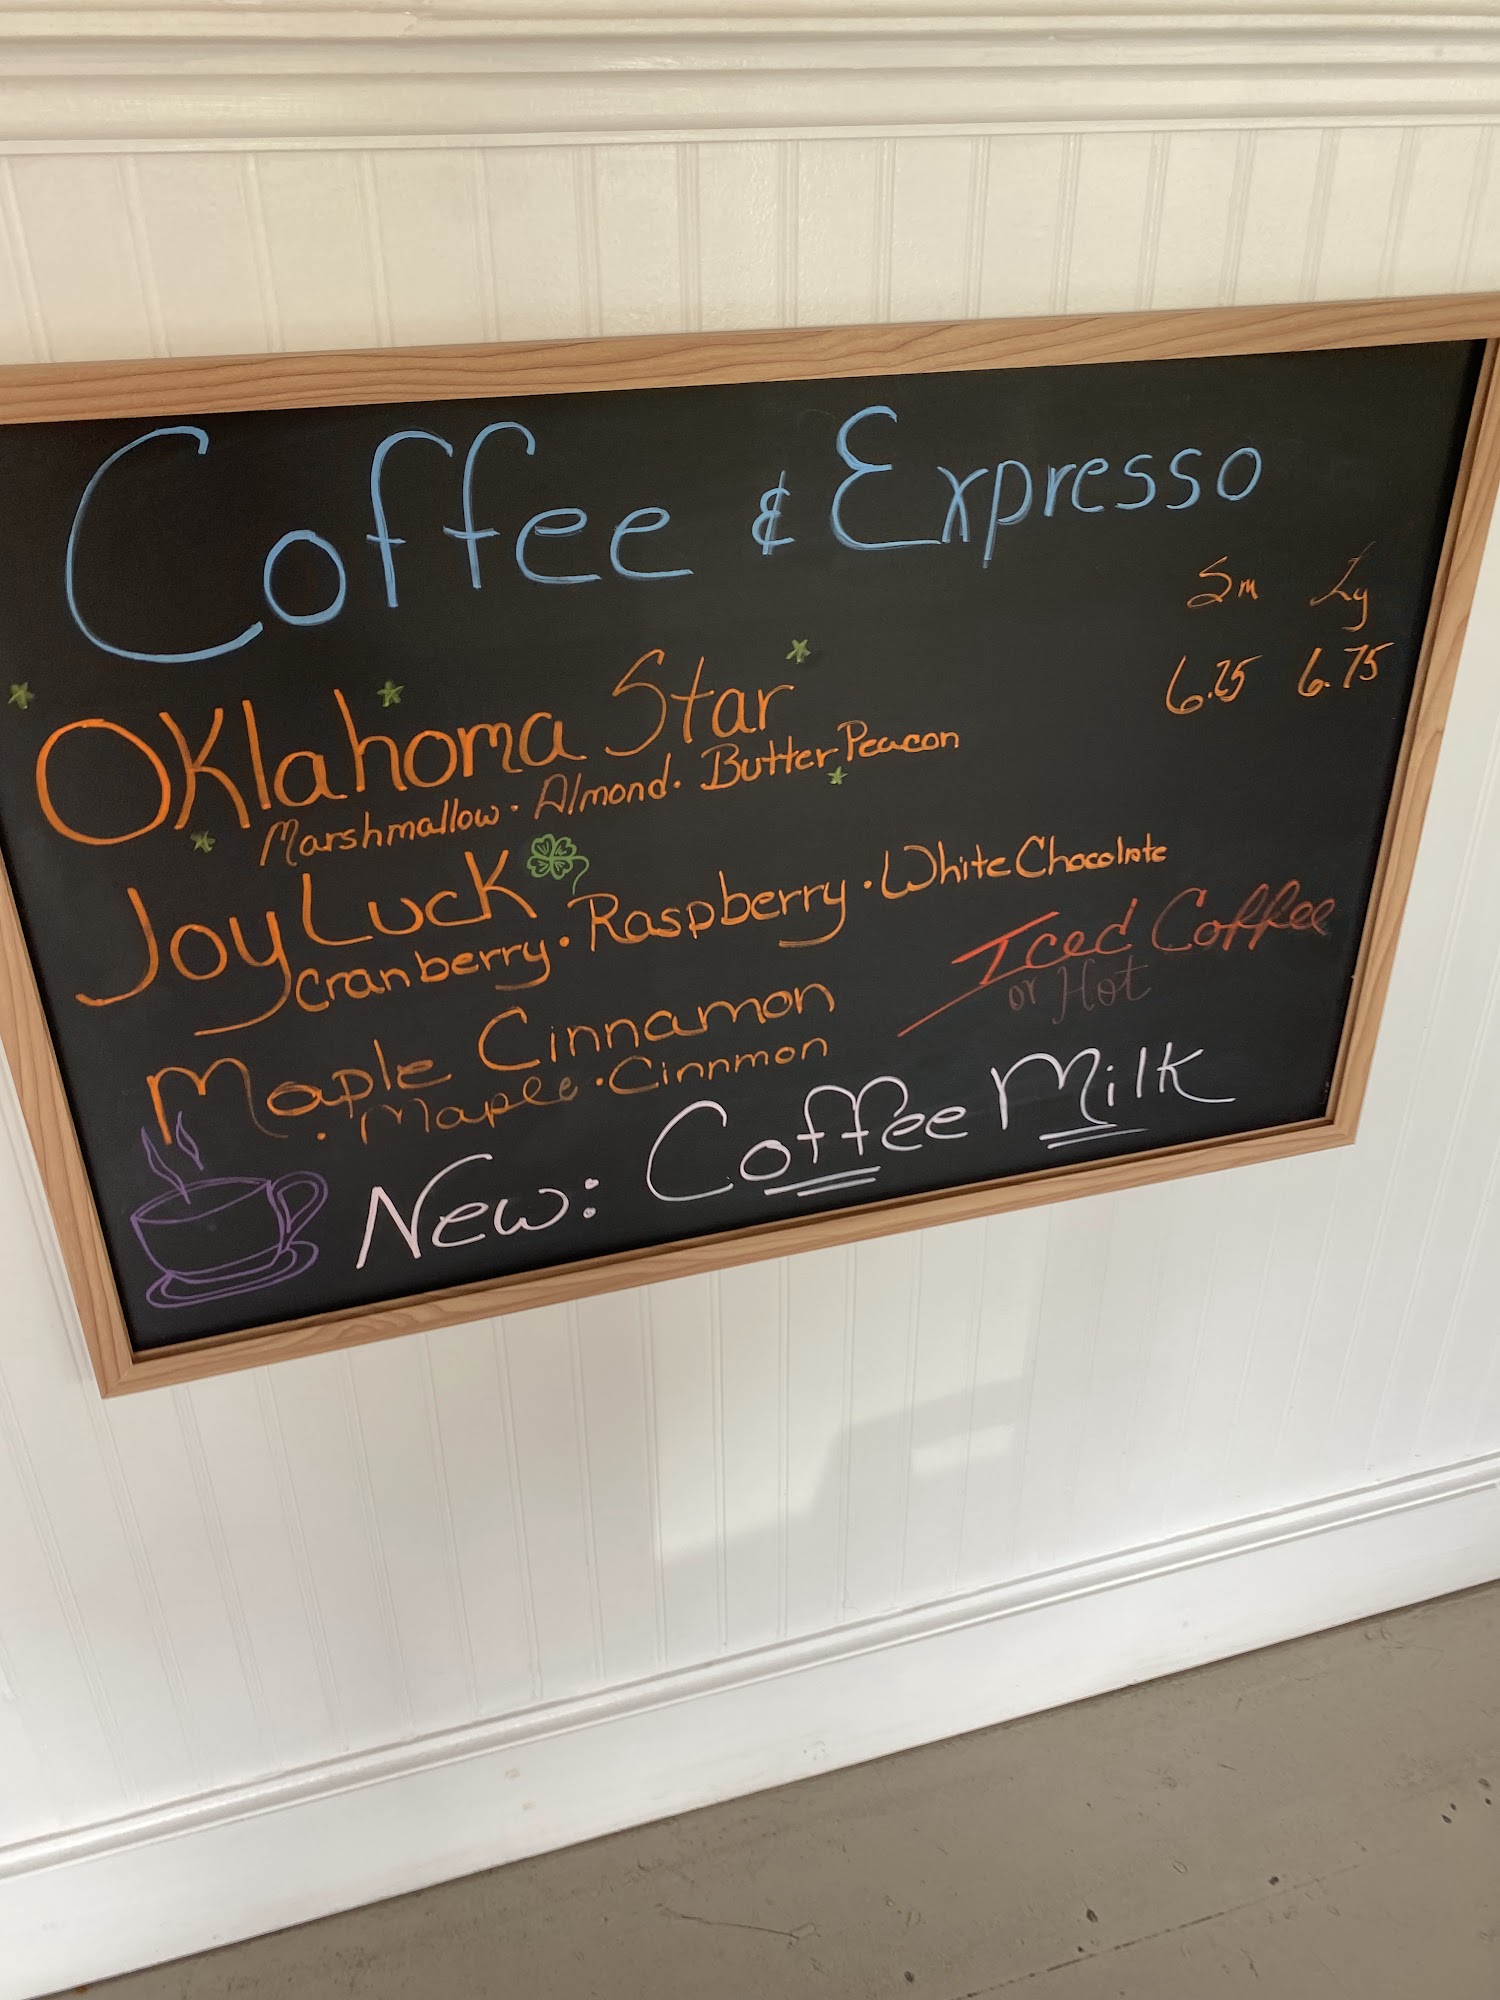 Coffee & Expresso
Sm Lg
Oklahoma Star 6.25 6.75
Marshmallow · Almond · Butter Peacon
Joy Luck
Cranberry · Raspberry · White Chocolate
Iced Coffee
or Hot
Maple Cinnamon
· Maple · Cinnmon
New: Coffee Milk